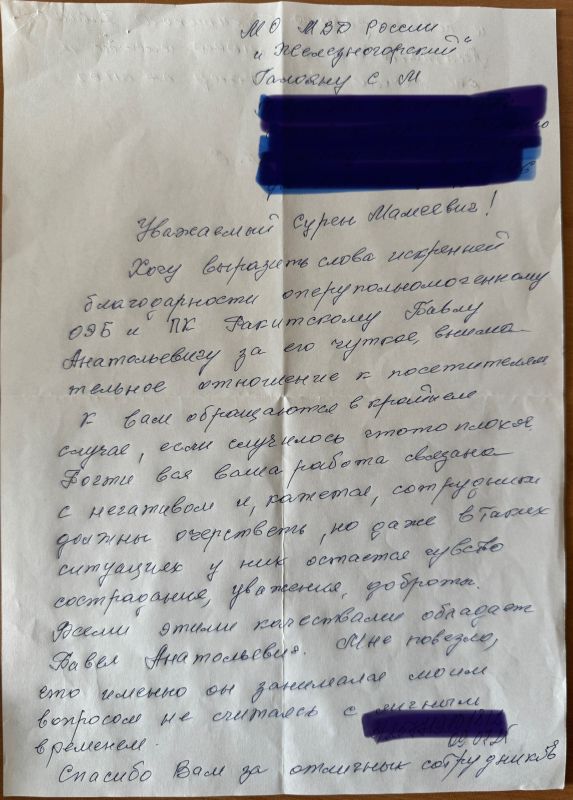 МО МВД России
„Железногорский“
Галояну С. М
Уважаемый Сурен Мамеевич!
Хочу выразить слова искренней
благодарности оперуполномоченному
ОЭБ и ПК Ракитскому Павлу
Анатольевичу за его чуткое, внима-
тельное отношение к посетителям
К вам обращаются в крайнем
случае, если случилось чтото плохое.
Почти вся ваша работа связана
с негативом и, кажется, сотрудники
должны очерстветь, но даже в таких
ситуациях у них остается чувство
сострадания, уважения, доброты.
Всеми этими качествами обладает
Павел Анатольевич. Мне повезло,
что именно он занимался моим
вопросом не считаясь с личным
временем.
Спасибо Вам за отличных сотрудников